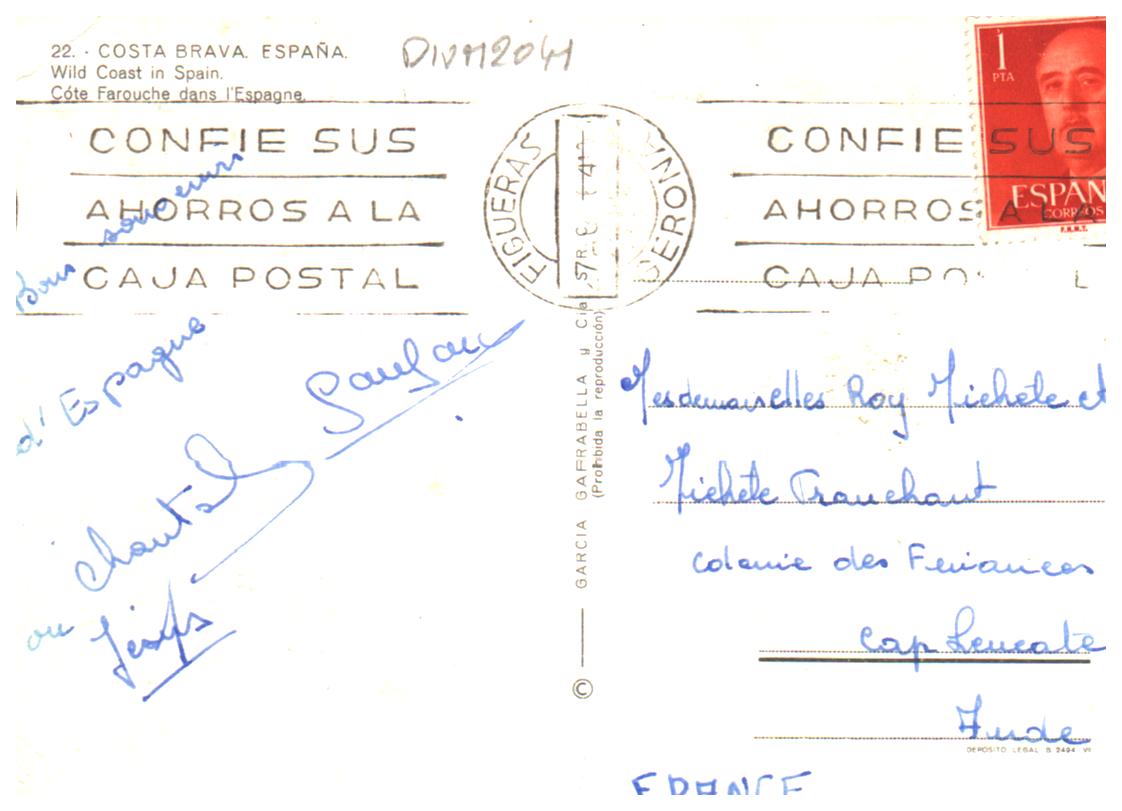 22. - COSTA BRAVA. ESPAÑA.
Wild Coast in Spain.
Côte Farouche dans l'Espagne.
DIVM2041
CONFIE SUS
AHORROS A LA
CAJA POSTAL
FIGUERAS
GERONA
CONFIE SUS
AHORROS A LA
CAJA POS L
1
PTA
ESPAN
CORREOS
F.N.M.T.
Bons souvenirs
d'Espagne
Chantal
ou
GARCIA GARRABELLA y Cia
(Prohibida la reproducción)
©
Mesdemoiselles Roy Michèle et
Michèle Tranchant
Colonie des Finances
Cap Leucate
Aude
DEPOSITO LEGAL B. 2494 VI
FRANCE